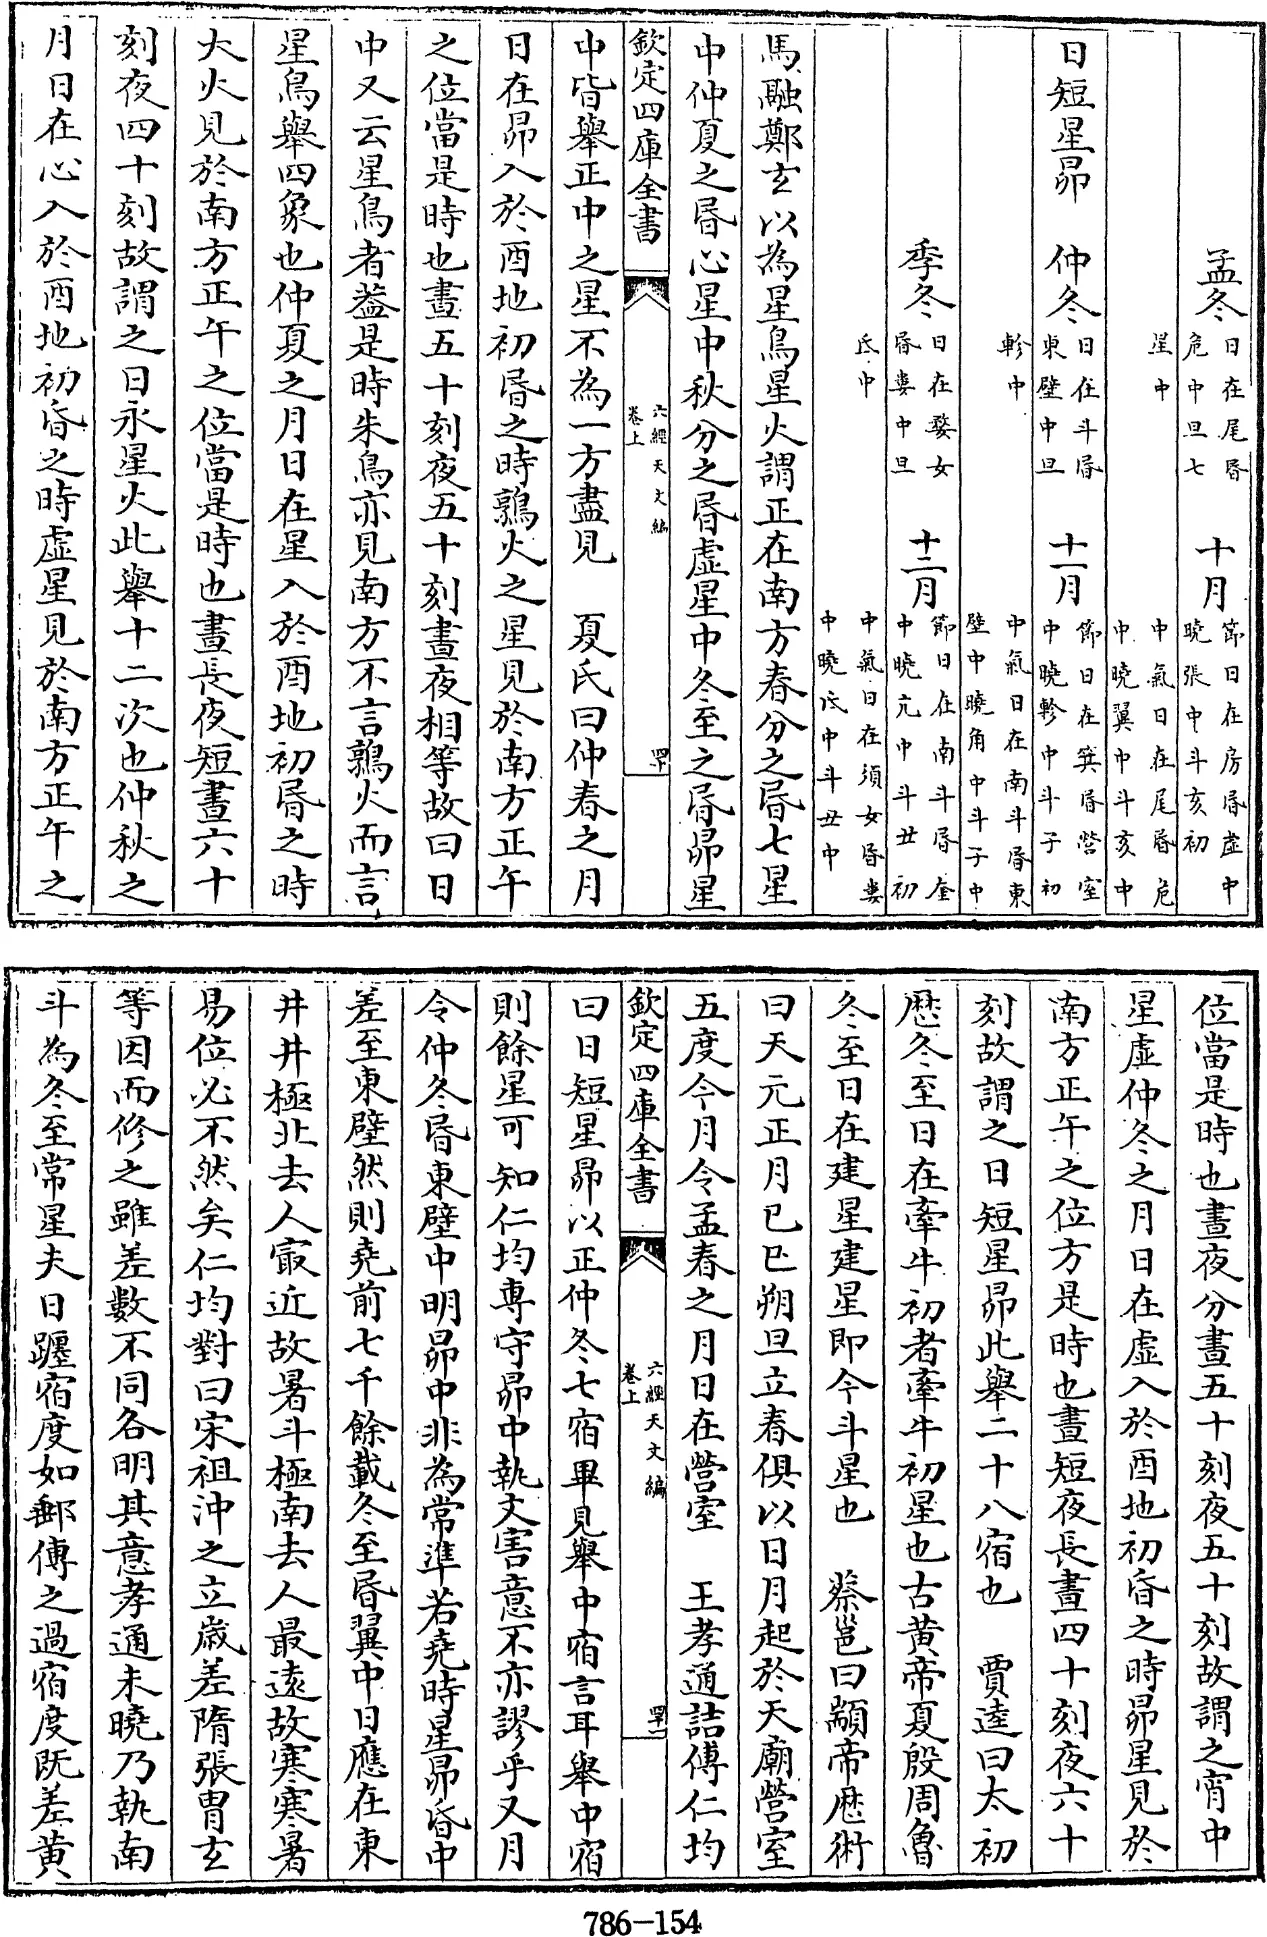 孟冬 日在尾昏危中旦七 十月 節日在房昏虛中曉張中斗亥初
星中 中氣日在尾昏危中曉翼中斗亥中
日短星昴 仲冬 日在斗昏東壁中旦 十一月 節日在箕昏營室中曉軫中斗子初
軫中 中氣日在南斗昏東壁中曉角中斗子中
季冬 日在婺女昏婁中旦 十二月 節日在南斗昏奎中曉亢中斗丑初
氐中 中氣日在須女昏婁中曉氐中斗丑中
馬融鄭玄以為星鳥星火謂正在南方春分之昏七星
中仲夏之昏心星中秋分之昏虛星中冬至之昏昴星
欽定四庫全書 六經天文編卷上 四十
中皆舉正中之星不為一方盡見 夏氏曰仲春之月
日在昴入於酉地初昏之時鶉火之星見於南方正午
之位當是時也晝五十刻夜五十刻晝夜相等故曰日
中又云星鳥者葢是時朱鳥亦見南方不言鶉火而言
星鳥舉四象也仲夏之月日在星入於酉地初昏之時
大火見於南方正午之位當是時也晝長夜短晝六十
刻夜四十刻故謂之日永星火此舉十二次也仲秋之
月日在心入於酉地初昏之時虛星見於南方正午之
位當是時也晝夜分晝五十刻夜五十刻故謂之宵中
星虛仲冬之月日在虛入於酉地初昏之時昴星見於
南方正午之位方是時也晝短夜長晝四十刻夜六十
刻故謂之日短星昴此舉二十八宿也 賈逵曰太初
厯冬至日在牽牛初者牽牛初星也古黃帝夏殷周魯
冬至日在建星建星即今斗星也 蔡邕曰顓帝厯術
曰天元正月己巳朔旦立春俱以日月起於天廟營室
五度今月令孟春之月日在營室 王孝通詰傅仁均
欽定四庫全書 六經天文編卷上 四十一
曰日短星昴以正仲冬七宿畢見舉中宿言耳舉中宿
則餘星可知仁均專守昴中執文害意不亦謬乎又月
令仲冬昏東壁中明昴中非為常準若堯時星昴昏中
差至東壁然則堯前七千餘載冬至昏翼中日應在東
井井極北去人寂近故暑斗極南去人最遠故寒寒暑
易位必不然矣仁均對曰宋祖沖之立嵗差隋張胄玄
等因而修之雖差數不同各明其意孝通未曉乃執南
斗為冬至常星夫日躔宿度如郵傳之過宿度既差黃
786-154